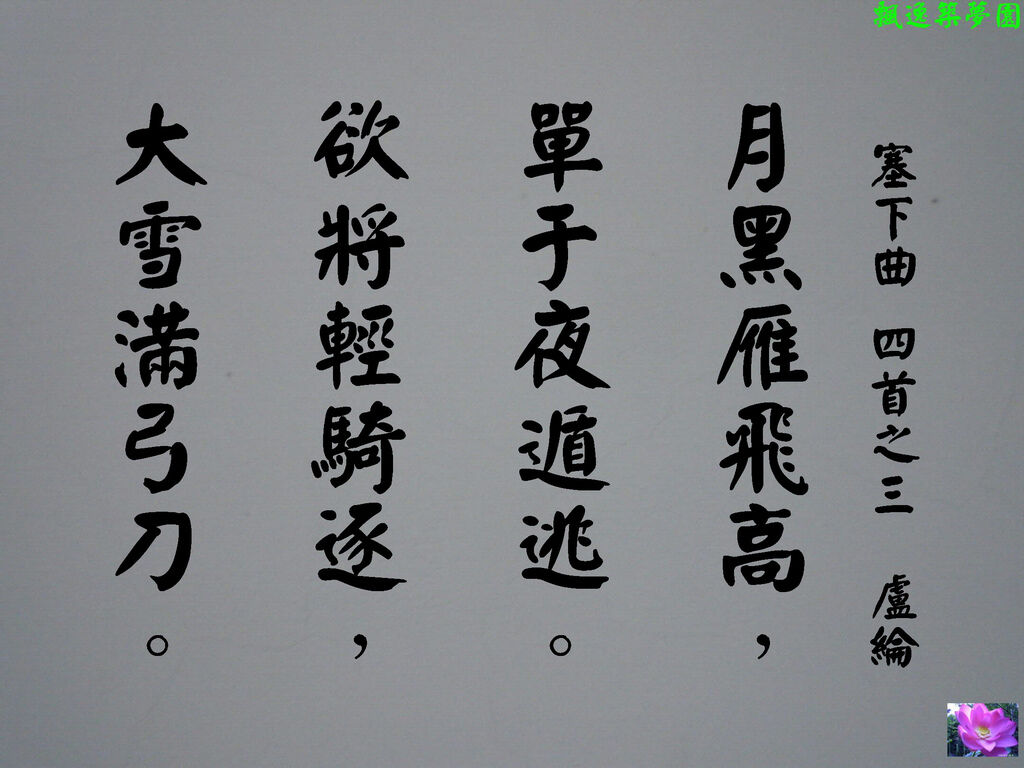 飄逸築夢園
塞下曲 四首之三 盧綸
月黑雁飛高，
單于夜遁逃。
欲將輕騎逐，
大雪滿弓刀。